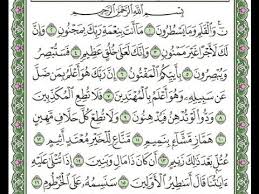 بِسْمِ اللَّهِ الرَّحْمَٰنِ الرَّحِيمِ
نٓ وَالْقَلَمِ وَمَا يَسْطُرُونَ ١ مَا أَنتَ بِنِعْمَةِ رَبِّكَ بِمَجْنُونٍ ٢
وَإِنَّ لَكَ لَأَجْرًا غَيْرَ مَمْنُونٍ ٣ وَإِنَّكَ لَعَلَىٰ خُلُقٍ عَظِيمٍ ٤ فَسَتُبْصِرُ
وَيُبْصِرُونَ ٥ بِأَييِّكُمُ الْمَفْتُونُ ٦ إِنَّ رَبَّكَ هُوَ أَعْلَمُ بِمَن ضَلَّ
عَن سَبِيلِهِ وَهُوَ أَعْلَمُ بِالْمُهْتَدِينَ ٧ فَلَا تُطِعِ الْمُكَذِّبِينَ ٨
وَدُّوا لَوْ تُدْهِنُ فَيُدْهِنُونَ ٩ وَلَا تُطِعْ كُلَّ حَلَّافٍ مَّهِينٍ ١٠
هَمَّازٍ مَّشَّاءٍ بِنَمِيمٍ ١١ مَّنَّاعٍ لِّلْخَيْرِ مُعْتَدٍ أَثِيمٍ ١٢
عُتُلٍّ بَعْدَ ذَٰلِكَ زَنِيمٍ ١٣ أَن كَانَ ذَا مَالٍ وَبَنِينَ ١٤ إِذَا تُتْلَىٰ عَلَيْهِ
ءَايَٰتُنَا قَالَ أَسَٰطِيرُ الْأَوَّلِينَ ١٥ سَنَسِمُهُ عَلَى الْخُرْطُومِ ١٦